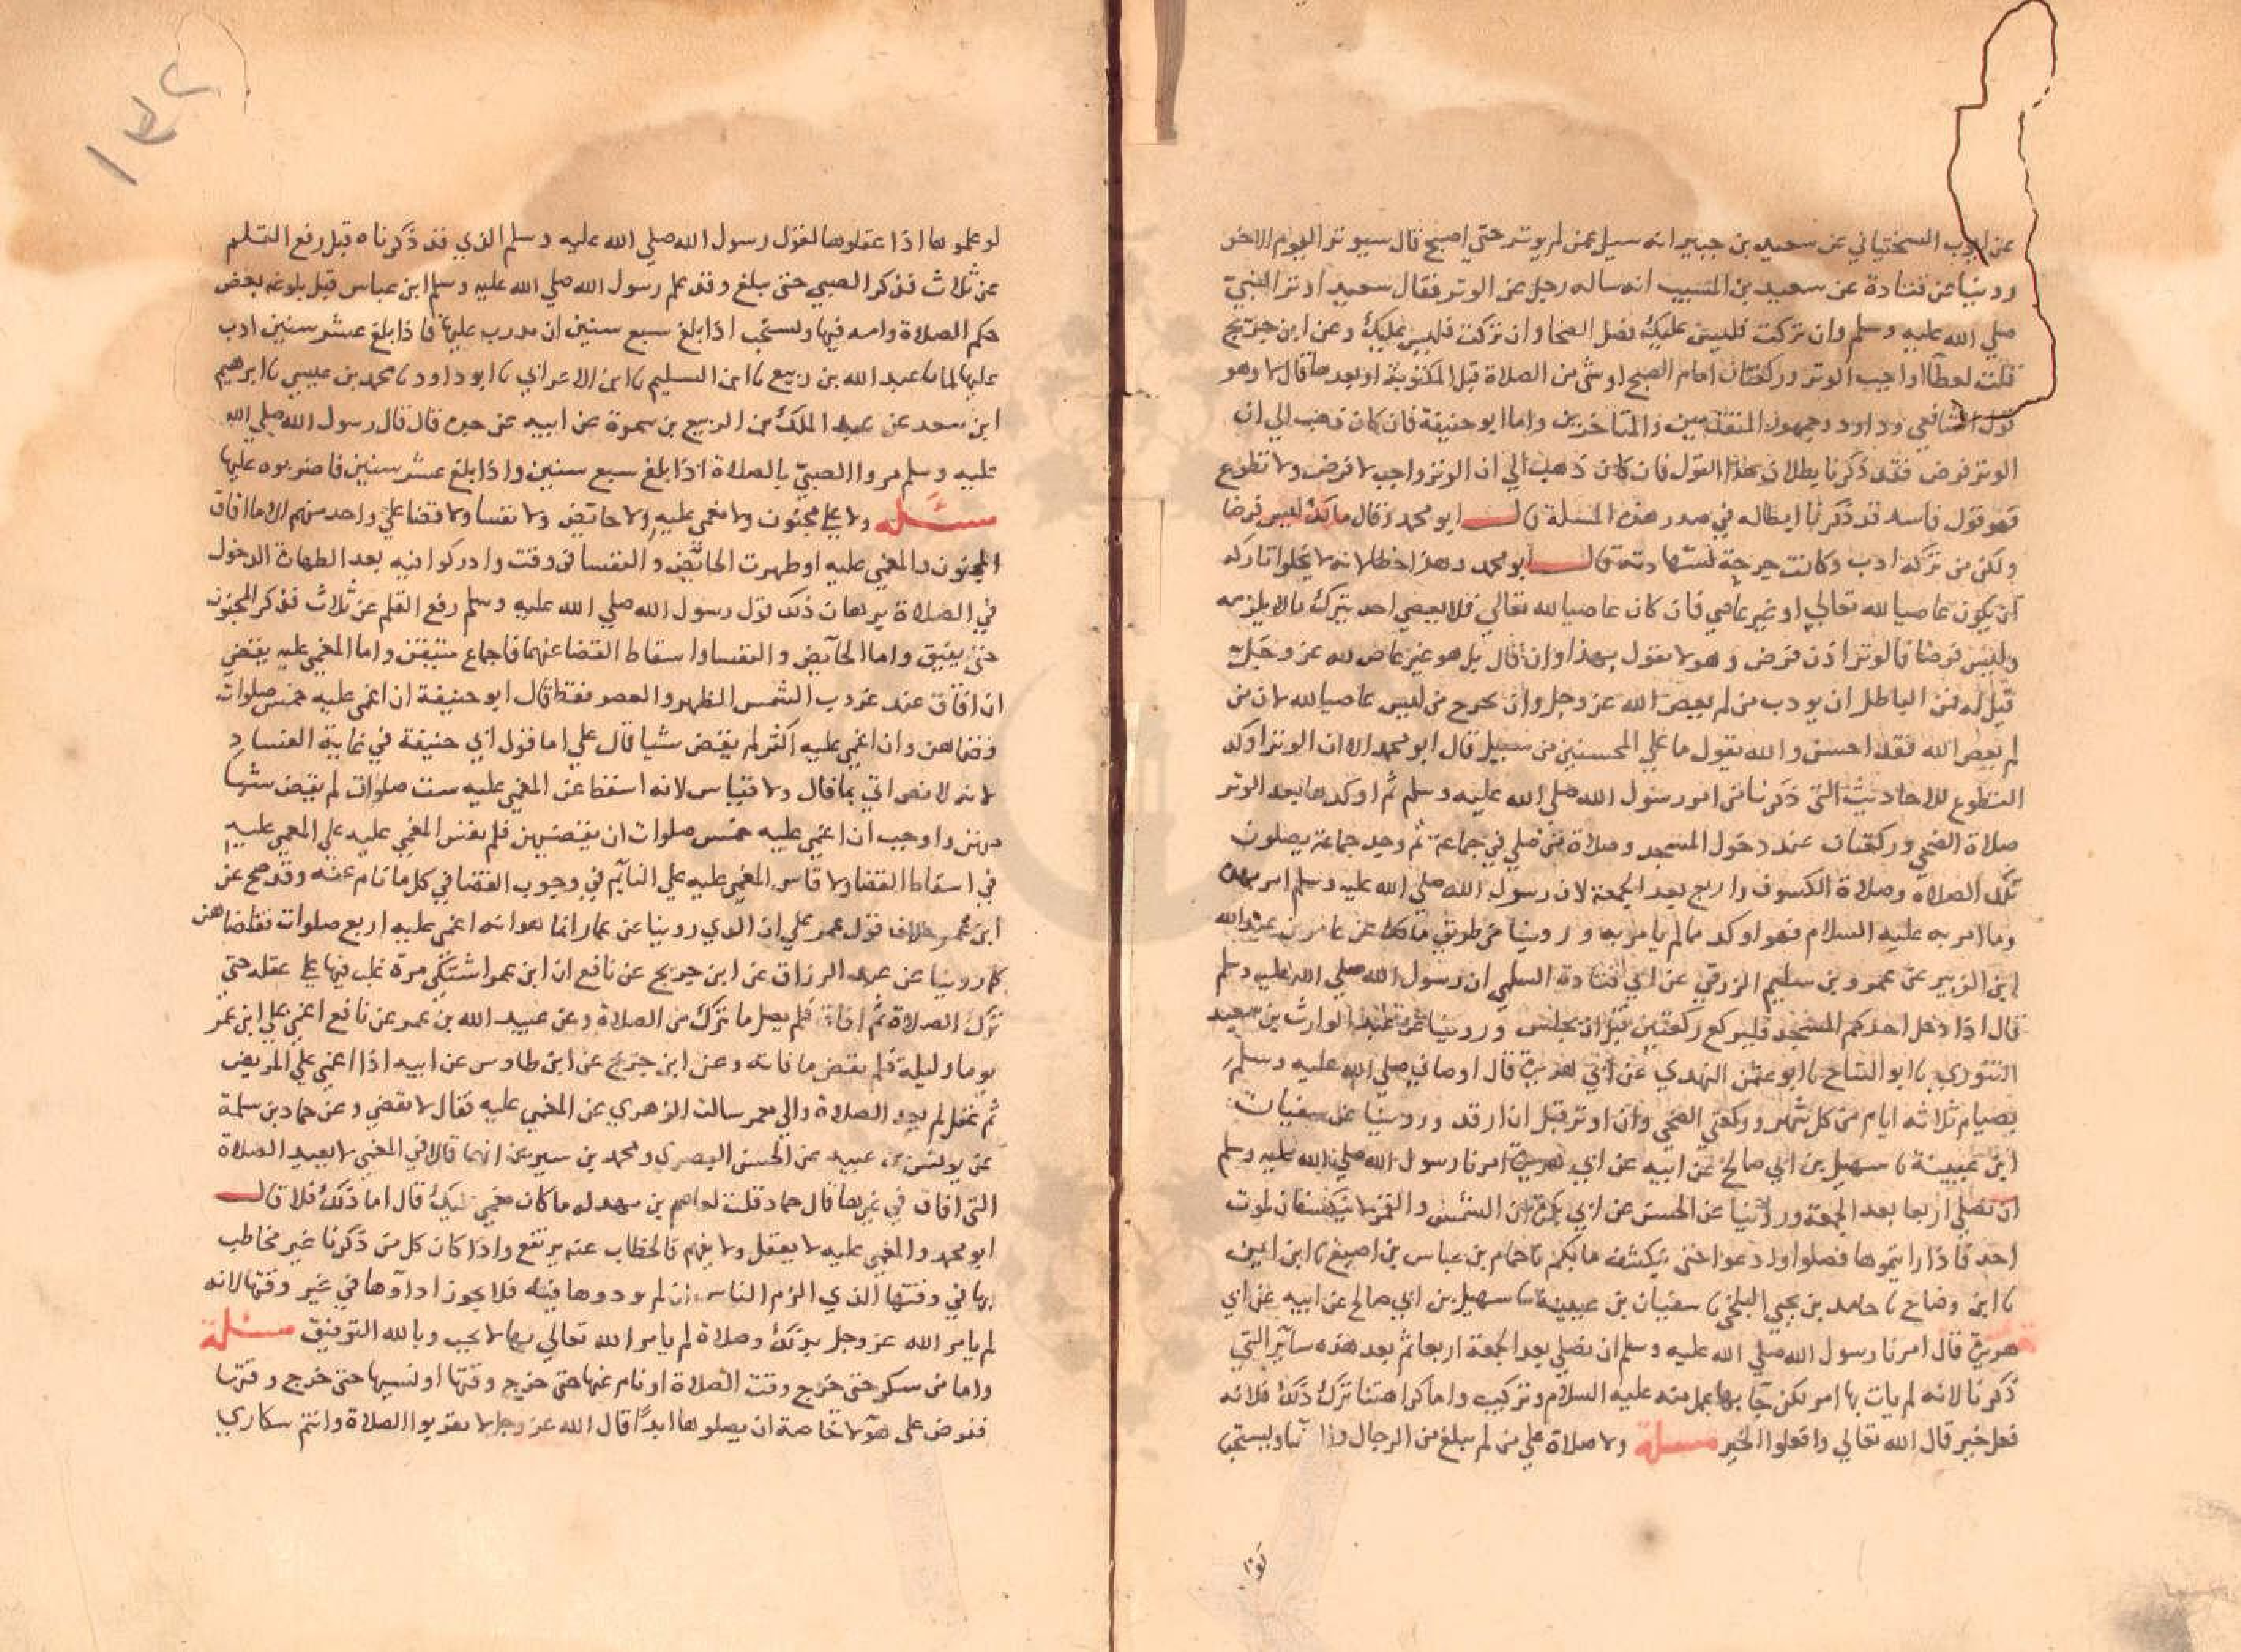 عن ايوب السختياني عن سعيد بن جبير انه سيل عمن لم يوتر حتي اصبح قال سيوتر اليوم الاخر
روينا عن قتادة عن سعيد بن المسيب انه ساله رجل عن الوتر فقال سعيد اوتر النبي
صلي الله عليه وسلم وان تركت فليس عليك وصل الضحا وان تركت فليس عليك وعن ابن جريج
قلت لعطآ اواجب الوتر وركعتان امام الصبح او شي من الصلاة قبل المكتوبة او بعدها قال لا وهو
قول الشافعي وداود وجمهور المتقدمين والمتاخرين واما ابو حنيفة فان كان ذهب الي ان
الوتر فرض فقد ذكرنا بطلان هذا القول فان كان ذهب الي ان الوتر واجب لا فرض ولا تطوع
فهو قول فاسد قد ذكرنا ابطاله في صدر هذه المسلة قال ابو محمد وقال مالك ليس فرضا
ولكن من تركه ادب وكانت جرحة لشهادته قال ابو محمد وهذا خطا لانه لا يخلوا تاركه
ان يكون عاصيا لله تعالي او غير عاصي فان كان عاصيا لله تعالي فلا يعصي احد بترك مالا يلزمه
وليس فرضا فالوتر اذن فرض وهو لا يقول بهذا وان قال بل هو غير عاص لله عز وجل
قيل له فمن الباطل ان يودب من لم يعص الله عز وجل وان يجرح من ليس عاصيا لله لان من
لم يعص الله فقد احسن والله يقول ما علي المحسنين من سبيل قال ابو محمد الا ان الوتر اوكد
التطوع للاحاديث التي ذكرنا من امر رسول الله صلي الله عليه وسلم ثم اوكدها بعد الوتر
صلاة الضحي وركعتان عند دخول المسجد وصلاة من صلي في جماعة ثم وجد جماعة يصلون
تلك الصلاة وصلاة الكسوف واربع بعد الجمعة لان رسول الله صلي الله عليه وسلم امر بهن
وما امر به عليه السلام فهو اوكد مما لم يامر به وروينا من طريق مالك عن عامر بن عبد الله
ابن الزبير عن عمرو بن سليم الزرقي عن ابي قتادة السلمي ان رسول الله صلي الله عليه وسلم
قال اذا دخل احدكم المسجد فليركع ركعتين قبل ان يجلس وروينا عن عبد الوارث بن سعيد
التنوري نا ابو التياح نا ابو عثمن النهدي عن ابي هريرة قال اوصاني صلي الله عليه وسلم
بصيام ثلاثه ايام من كل شهر وركعتي الضحي وان اوتر قبل ان ارقد وروينا عن سفيان
ابن عيينة نا سهيل بن ابي صالح عن ابيه عن ابي هريرة امرنا رسول الله صلي الله عليه وسلم
ان نصلي اربعا بعد الجمعة وروينا عن الحسن عن ابي بكرة ان الشمس والقمر لا ينكسفان لموت
احد فاذا رايتموها فصلوا وادعوا حتي ينكشف ما بكم نا حمام بن عباس بن اصبغ نا ابن ايمن
نا ابن وضاح نا حامد بن يحيي البلخي نا سفيان بن عيينة نا سهيل بن ابي صالح عن ابيه عن ابي
هريرة قال امرنا رسول الله صلي الله عليه وسلم ان نصلي بعد الجمعة اربعا ثم بعد هذه سآير التي
ذكرنا لانه لم يات بها امر لكن جآ بها عمل منه عليه السلام وترغيب واما كراهتنا ترك ذلك فلانه
فعل خير قال الله تعالي وافعلوا الخير مسلة ولا صلاة علي من لم يبلغ من الرجال والنسا ويستحب
لو علموها اذا عقلوها لقول رسول الله صلي الله عليه وسلم الذي قد ذكرناه قبل رفع القلم
عن ثلاث فذكر الصبي حتي يبلغ وقد علم رسول الله صلي الله عليه وسلم ابن عباس قبل بلوغه بعض
حكم الصلاة وامه فيها ويستحب اذا بلغ سبع سنين ان يدرب عليها فاذا بلغ عشر سنين ادب
عليها لما نا عبد الله بن ربيع نا ابن السليم نا ابن الاعرابي نا ابو داود نا محمد بن عيسي نا ابرهيم
ابن سعد عن عبد الملك بن الربيع بن سمرة عن ابيه عن جده قال قال رسول الله صلي الله
عليه وسلم مروا الصبي بالصلاة اذا بلغ سبع سنين واذا بلغ عشر سنين فاضربوه عليها
مسئله ولا علي مجنون ولا مغمي عليه ولا حايض ولا نفسا ولا قضا علي واحد منهم الا ما افاق
المجنون والمغمي عليه او طهرت الحائض والنفسا في وقت وادركوا فيه بعد الطهارة الدخول
في الصلاة برهان ذلك قول رسول الله صلي الله عليه وسلم رفع القلم عن ثلاث فذكر المجنون
حتي يفيق واما الحآيض والنفسا واسقاط القضا عنهما فاجماع متيقن واما المغمي عليه يقضي
ان افاق عند غروب الشمس الظهر والعصر فقط قال ابو حنيفة ان اغمي عليه خمس صلوات
قضاهن وان اغمي عليه اكثر لم يقض شيا قال علي اما قول ابي حنيفة في غاية الفساد
لانه لا نص اتي بما قال ولا قياس لانه اسقط عن المغمي عليه ست صلوات لم يقض شيا
منهن واوجب ان اغمي عليه خمس صلوات ان يقضيهن فلم يقس المغمي عليه علي المغمي عليه
في اسقاط القضا ولا قاس المغمي عليه علي النآيم في وجوب القضا في كل ما نام عنه وقد صح عن
ابن عمر خلاف قول عمر علي ان الذي روينا عن عمار انما هو انه اغمي عليه اربع صلوات فقضاهن
كما روينا عن عبد الرزاق عن ابن جريج عن نافع ان ابن عمر اشتكي مرة غلب فيها علي عقله حتي
ترك الصلاة ثم افاق فلم يصل ما ترك من الصلاة وعن عبيد الله بن عمر عن نافع اغمي علي ابن عمر
يوما وليلة فلم يقض ما فاته وعن ابن جريج عن ابن طاوس عن ابيه اذا اغمي علي المريض
ثم عقل لم يعد الصلاة والي معمر سالت الزهري عن المغمي عليه فقال لا يقضي وعن حماد بن سلمة
عن يونس بن عبيد عن الحسن البصري ومحمد بن سيرين انهما قالا في المغمي لا يعيد الصلاة
التي افاق في غيرها قال حماد قلت لعاصم بن بهدله ما كان مغمي عليك قال اما ذلك فلا قال
ابو محمد والمغمي عليه لا يعقل ولا يفهم فالخطاب عنه يرتفع واذا كان كل من ذكرنا غير مخاطب
بها في وقتها الذي الزم الناس ان لم يودوها فيه فلا يجوز ادآوها في غير وقتها لانه
لم يامر الله عز وجل بذلك وصلاة لم يامر الله تعالي بها لا تجب وبالله التوفيق مسئلة
واما من سكر حتي خرج وقت الصلاة او نام عنها حتي خرج وقتها او نسيها حتي خرج وقتها
ففرض علي هولآ خاصة ان يصلوها ابدا قال الله عز وجل لا تقربوا الصلاة وانتم سكاري